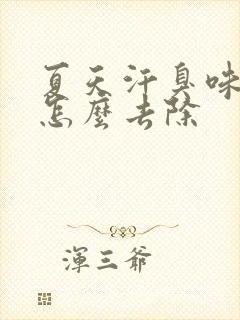 夏天汗臭味
怎麼去除
渾三爺